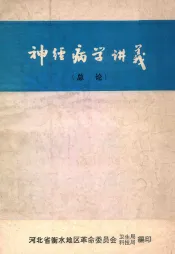 神经病学讲义
(总论)
河北省衡水地区革命委员会 卫生局 科技局 编印